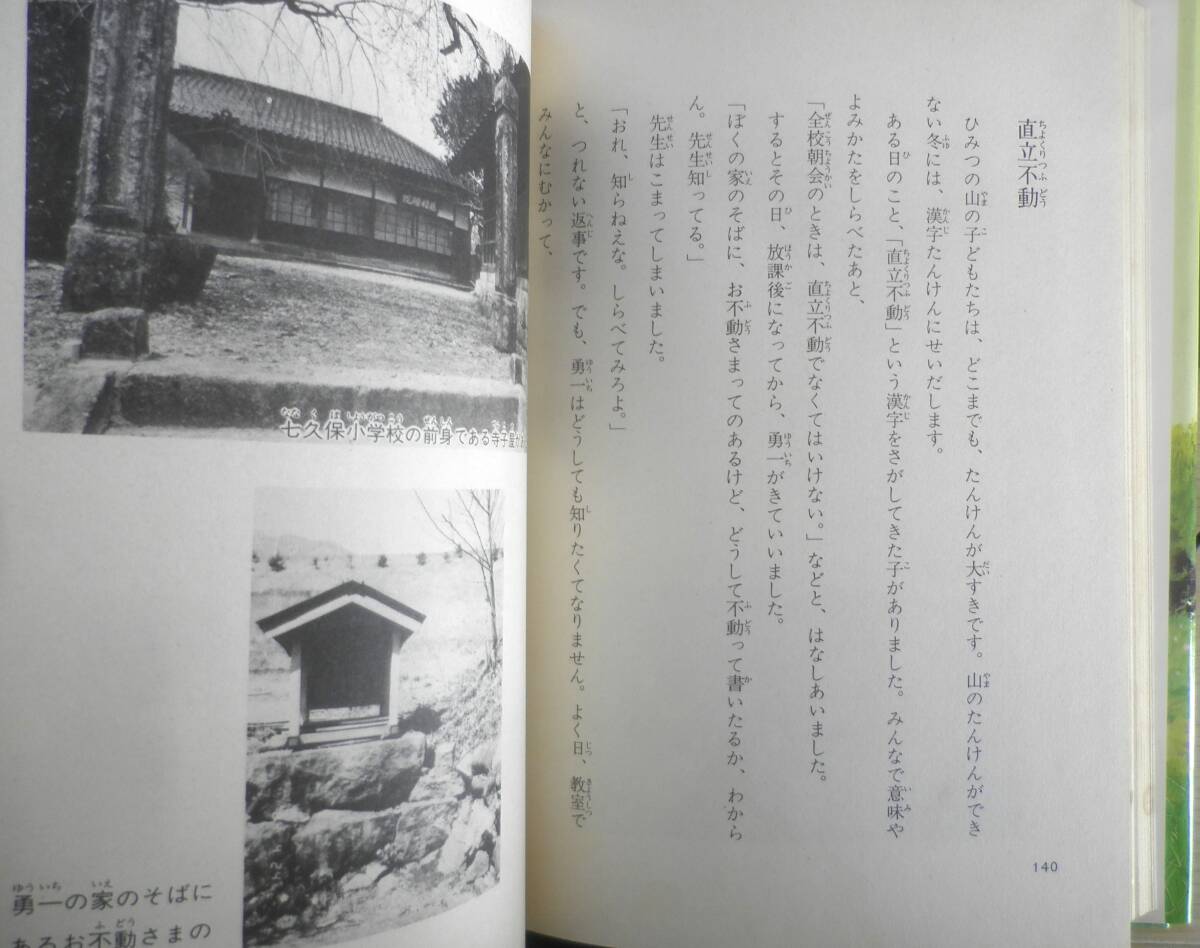 直立不動
ひみつの山の子どもたちは、どこまでも、たんけんが大すきです。山のたんけんができ
ない冬には、漢字たんけんにせいだします。
ある日のこと、「直立不動」という漢字をさがしてきた子がありました。みんなで意味や
よみかたをしらべたあと、
「全校朝会のときは、直立不動でなくてはいけない。」などと、はなしあいました。
するとその日、放課後になってから、勇一がきていいました。
「ぼくの家のそばに、お不動さまってのあるけど、どうして不動って書いたるか、わから
ん。先生知ってる。」
先生はこまってしまいました。
「おれ、知らねえな。しらべてみろよ。」
と、つれない返事です。でも、勇一はどうしても知りたくてなりません。よく日、教室で
みんなにむかって、
140
七久保小学校の前身である寺子屋が
勇一の家のそばに
あるお不動さまの